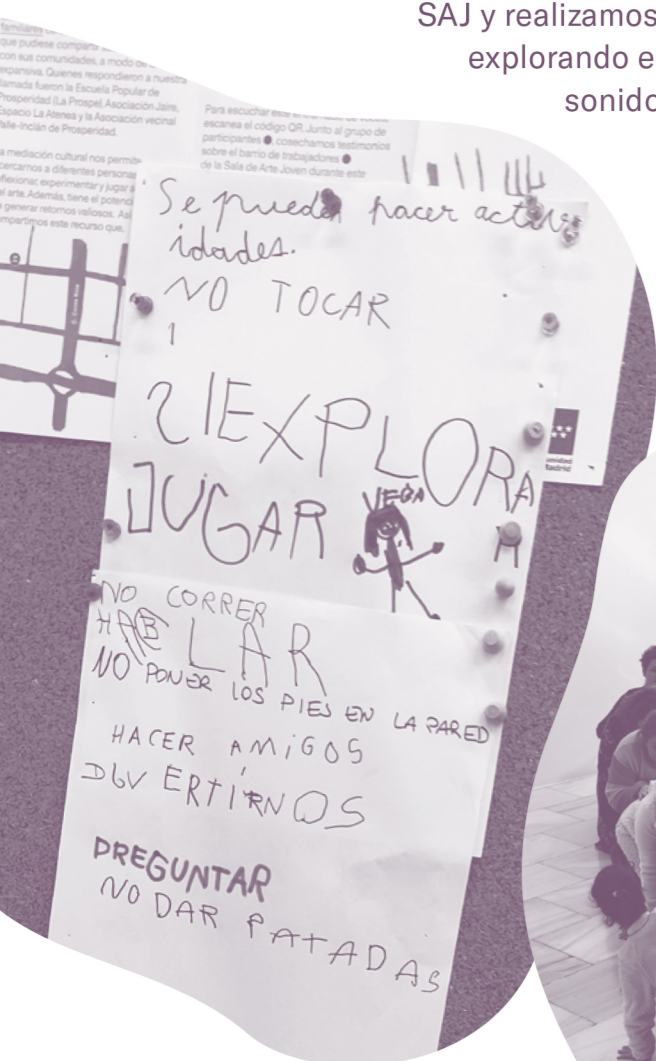 SAJ y realizamos
explorando e
sonido
familiares
que pudiese
con sus comunidades, a modo de
expansiva. Quienes respondieron a nuestra
llamada fueron la Escuela Popular de
Prosperidad (La Prospe), Asociación Jaire,
Espacio La Atenea y la Asociación vecinal
Valle-Inclán de Prosperidad.
a mediación cultural nos permite
cercarnos a diferentes personas
flexionar, experimentar y jugar a
el arte. Además, tiene el potenc
generar retornos valiosos. Así
mpartimos este recurso que,
Para escuchar
escanea el código QR. Junto al grupo de
participantes cosechamos testimonios
sobre el barrio de trabajadores
de la Sala de Arte Joven durante este
Se pueden hacer activ
idades.
NO TOCAR
1
SIEXPLORA
R
JUGAR
VEGA
NO CORRER
HABLAR
NO PONER LOS PIES EN LA PARED
HACER AMiGOS
DIVERTIRNOS
PREGUNTAR
NO DAR PATADAS
unidad
Madrid